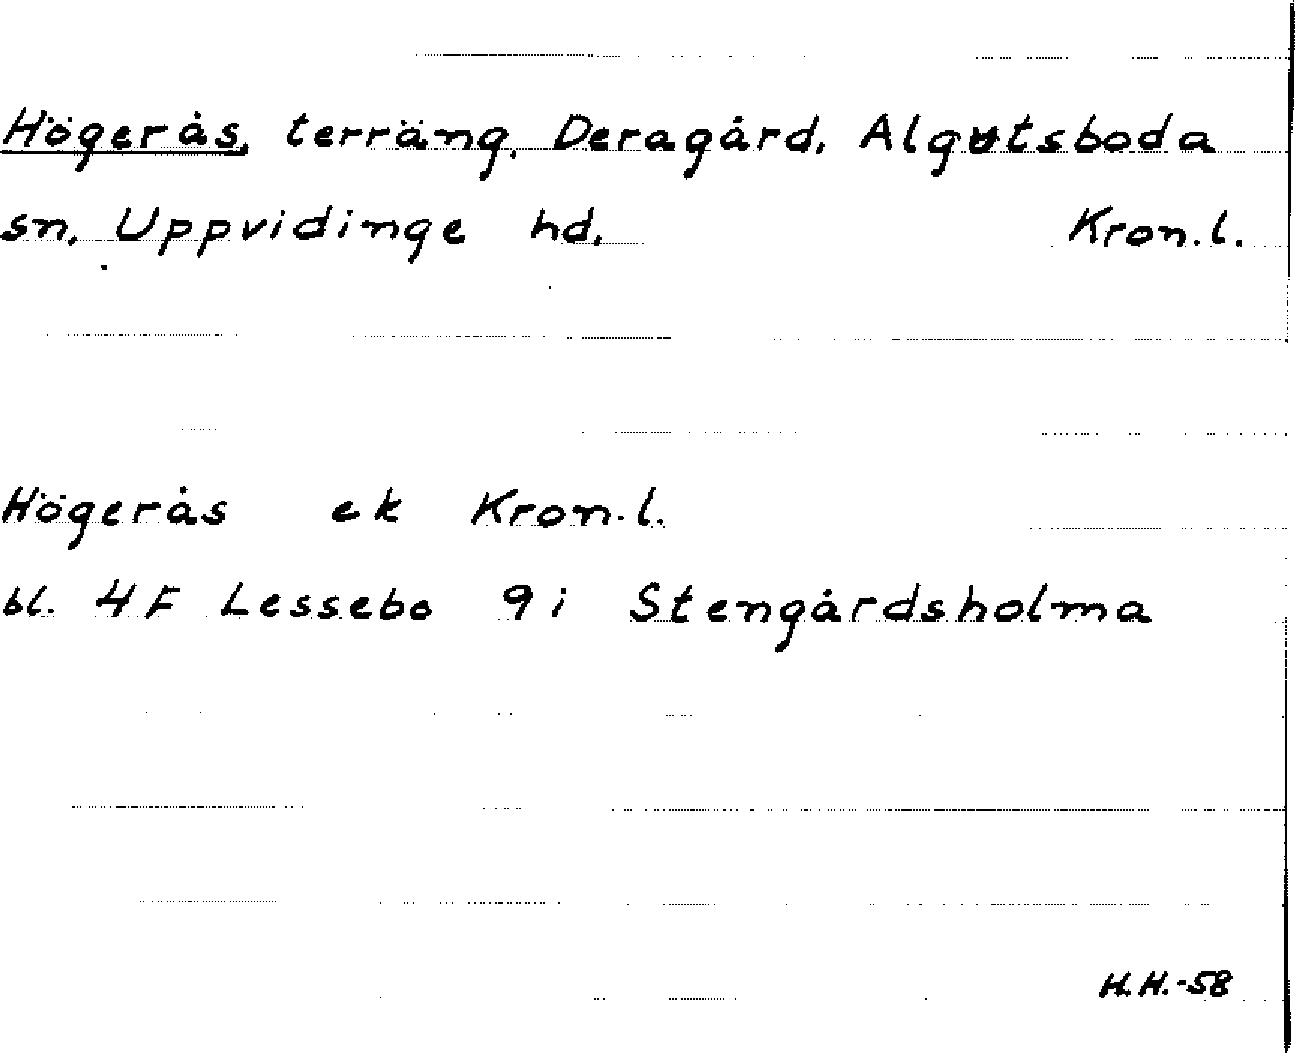 Högerås, terräng, Deragård, Algutsboda
sn, Uppvidinge hd, Kron.l.
Högerås ek Kron.l.
bl. 4F Lessebo 9i Stengårdsholma
H.H.-58